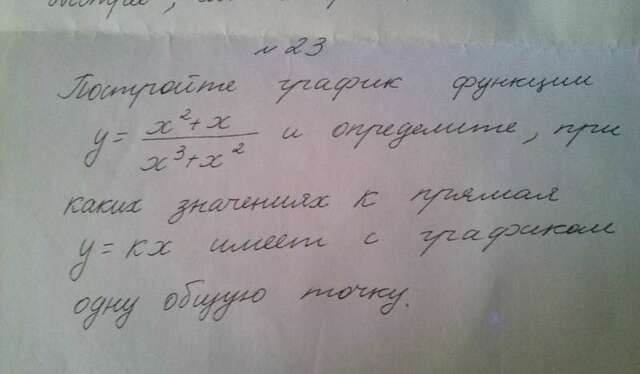 быстрие,
№23
Постройте график функции
y = \frac{x^2+x}{x^3+x^2} и определите, при
каких значениях к прямая
y = кx имеет с графиком
одну общую точку.